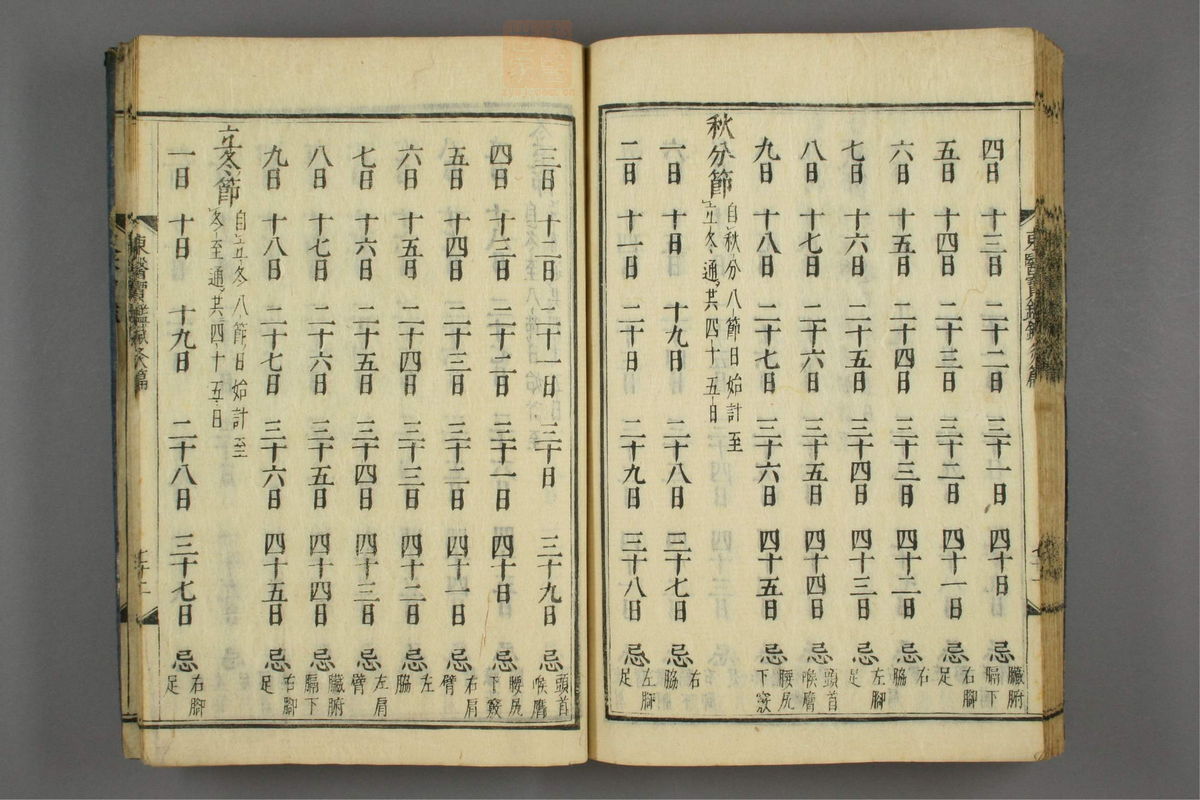 四日 十三日 二十二日 三十一日 四十日 忌 臟腑膈下
五日 十四日 二十三日 三十二日 四十一日 忌 右腳足
六日 十五日 二十四日 三十三日 四十二日 忌 右脇
七日 十六日 二十五日 三十四日 四十三日 忌 左腳足
八日 十七日 二十六日 三十五日 四十四日 忌 頭首喉膺
九日 十八日 二十七日 三十六日 四十五日 忌 腰尻下竅
秋分節 自秋分八節日始計至立冬通共四十五日
六日 十日 十九日 二十八日 三十七日 忌 右脇
二日 十一日 二十日 二十九日 三十八日 忌 左腳足
三日 十二日 二十一日 三十日 三十九日 忌 頭首喉膺
四日 十三日 二十二日 三十一日 四十日 忌 腰尻下竅
五日 十四日 二十三日 三十二日 四十一日 忌 右肩臂
六日 十五日 二十四日 三十三日 四十二日 忌 左脇
七日 十六日 二十五日 三十四日 四十三日 忌 左肩臂
八日 十七日 二十六日 三十五日 四十四日 忌 臟腑膈下
九日 十八日 二十七日 三十六日 四十五日 忌 右腳足
立冬節 自立冬八節日始計至冬至通共四十五日
一日 十日 十九日 二十八日 三十七日 忌 右腳足
東醫寶鑑鍼灸篇